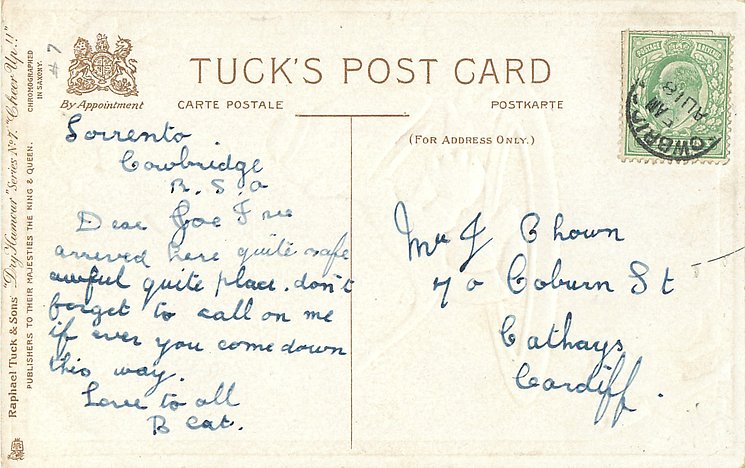 Raphael Tuck & Sons "Dry Humour" Series Nº 7. "Cheer Up.!!"
PUBLISHERS TO THEIR MAJESTIES THE KING & QUEEN.
CHROMOGRAPHED
IN SAXONY.
# 7
By Appointment
TUCK'S POST CARD
CARTE POSTALE
POSTKARTE
(FOR ADDRESS ONLY.)
POSTAGE
AU 18
Sorrento
Cowbridge
R. S. O
Dear Joe
arrived here quite safe
awful quite place. don't
forget to call on me
if ever you come down
this way.
Love to all
B Cat.
J Chown
70 Coburn St
Cathays
Cardiff.